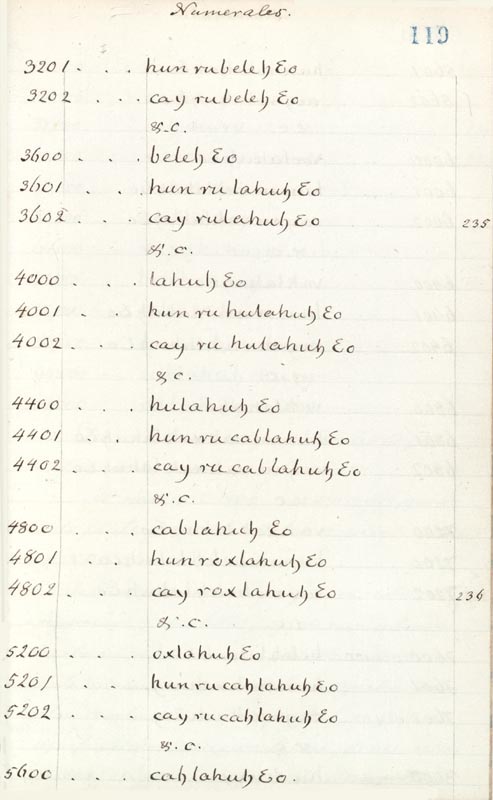 Numerales.
119
3201 . . . hun rubeleꜧ Ɛo
3202 . . . cay rubeleꜧ Ɛo
&.c.
3600 . . . beleꜧ Ɛo
3601 . . . hun ru lahuꜧ Ɛo
3602 . . . cay rulahuꜧ Ɛo 235
&.c.
4000 . . . lahuꜧ Ɛo
4001 . . hun ru hulahuꜧ Ɛo
4002 . . . cay ru hulahuꜧ Ɛo
&c.
4400 . . . hulahuꜧ Ɛo
4401 . . . hun ru cablahuꜧ Ɛo
4402 . . . cay ru cablahuꜧ Ɛo
&.c.
4800 . . . cablahuꜧ Ɛo
4801 . . . hun roxlahuꜧ Ɛo
4802 . . . cay roxlahuꜧ Ɛo 236
&.c.
5200 . . . oxlahuꜧ Ɛo
5201 . . . hun ru caꜧlahuꜧ Ɛo
5202 . . . cay ru caꜧlahuꜧ Ɛo
&.c.
5600 . . . caꜧlahuꜧ Ɛo.